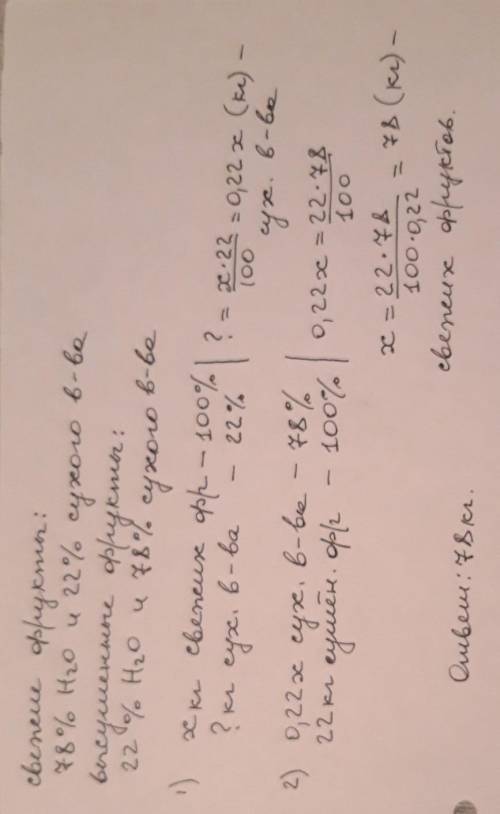 свежие фрукты:
78% H₂O и 22% сухого в-ва
высушенные фрукты:
22% H₂O и 78% сухого в-ва
1) x кг свежих фр – 100% | ? = x·22/100 = 0,22x (кг) –
? кг сух. в-ва – 22% | сух. в-ва
2) 0,22x сух. в-ва – 78% | 0,22x = 22·78/100
22 кг сушён. фр – 100% |
x = 22·78/100·0,22 = 78 (кг) –
свежих фруктов.
Ответ: 78 кг.